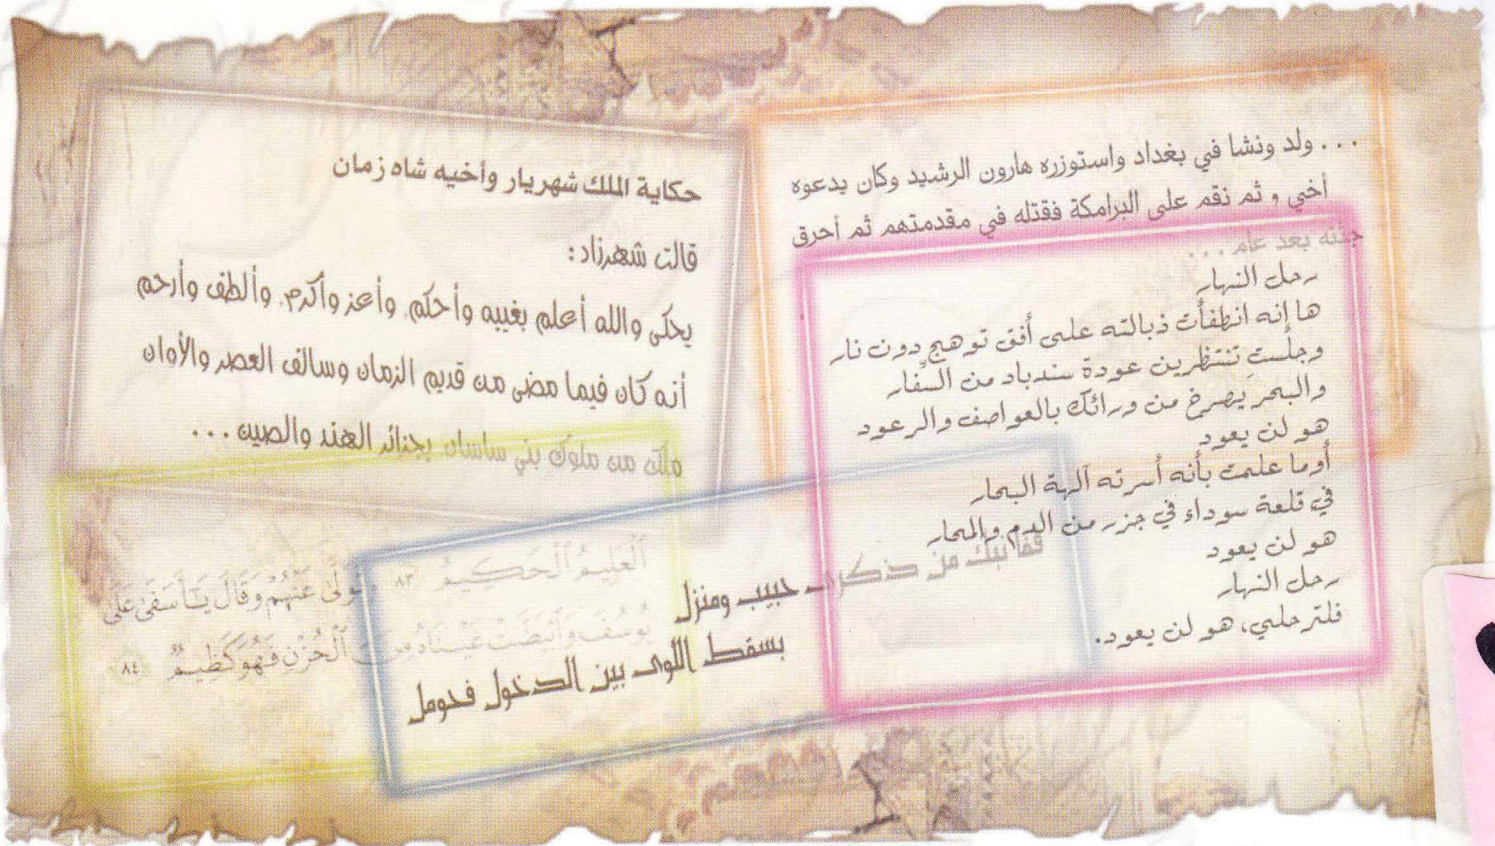 . . . ولد ونشا في بغداد واستوزره هارون الرشيد وكان يدعوه
أخي و ثم نقم على البرامكة فقتله في مقدمتهم ثم أحرق
جثته بعد عام . . .
رحل النهار
ها إنه انطفأت ذبالته على أفق توهج دون نار
وجلستِ تنتظرين عودة سندباد من السفار
والبحر يصرخ من ورائك بالعواصف والرعود
هو لن يعود
أوما علمت بأنه أسرته آلهة البحار
في قلعة سوداء في جزر من الدم والمحار
هو لن يعود
رحل النهار
فلترحلي، هو لن يعود.
حكاية الملك شهريار وأخيه شاه زمان
قالت شهرزاد:
يحكى والله أعلم بغيبه وأحكم. وأعز وأكرم. وألطف وأرحم
أنه كان فيما مضى من قديم الزمان وسالف العصر والأوان
ملك من ملوك بني ساسان بجزائر الهند والصين . . .
قفا نبك من ذكرى حبيب ومنزل
بسقط اللوى بين الدخول فحومل
ٱلْعَلِيمُ ٱلْحَكِيمُ ٨٣ وَتَوَلَّىٰ عَنْهُمْ وَقَالَ يَٰٓأَسَفَىٰ عَلَىٰ
يُوسُفَ وَٱبْيَضَّتْ عَيْنَاهُ مِنَ ٱلْحُزْنِ فَهُوَ كَظِيمٌ ٨٤